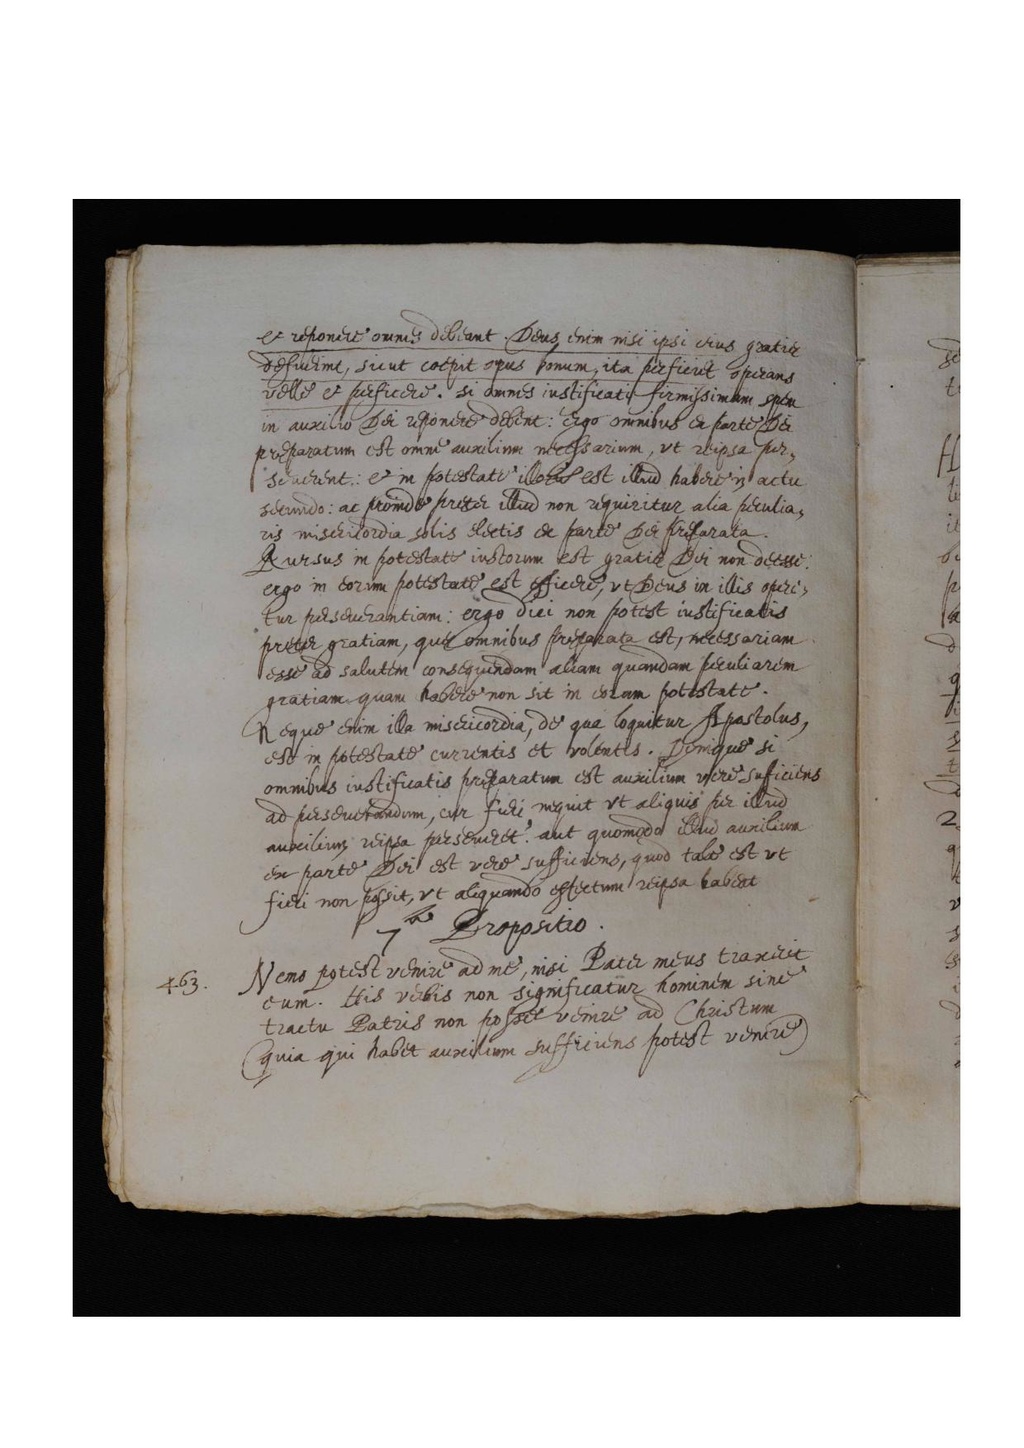 et reponere omnes debeant. Deus enim nisi ipsi eius gratiæ
defuerint, sicut coepit opus bonum, ita perficiet operans
velle et perficere. Si omnes iustificati firmissimam spem
in auxilio Dei reponere debent: ergo omnibus ex parte Dei
præparatum est omne auxilium necessarium, vt reipsa per,
severent: et in potestate est illud habere in actu
secundo: ac proinde præter illud non requiritur alia peculia,
ris misericordia solis electis ex parte Dei præparata.
Rursus in potestate iustorum est gratiæ Dei non deesse:
ergo in eorum potestate est efficere, vt Deus in illis opere,
tur perseuerantiam: ergo dici non potest iustificatis
præter gratiam, quæ omnibus præparata est, necessariam
esse ad salutem consequendam aliam quandam peculiarem
gratiam quam habere non sit in eorum potestate.
Neque enim illa misericordia, de qua loquitur Apostolus,
est in potestate currentis et volentis. Denique si
omnibus iustificatis præparatum est auxilium vere sufficiens
ad perseuerandum, cur fieri nequit vt aliquis per illud
auxilium reipsa perseueret? aut quomodo illud auxilium
ex parte Dei est vere sufficiens, quod tale est vt
fieri non possit, vt aliquando effectum reipsa habeat
7ᵃ Propositio.
463. Nemo potest venire ad me, nisi Pater meus traxerit
eum. His verbis non significatur hominem sine
tractu Patris non posse venire ad Christum
(quia qui habet auxilium sufficiens potest venire)